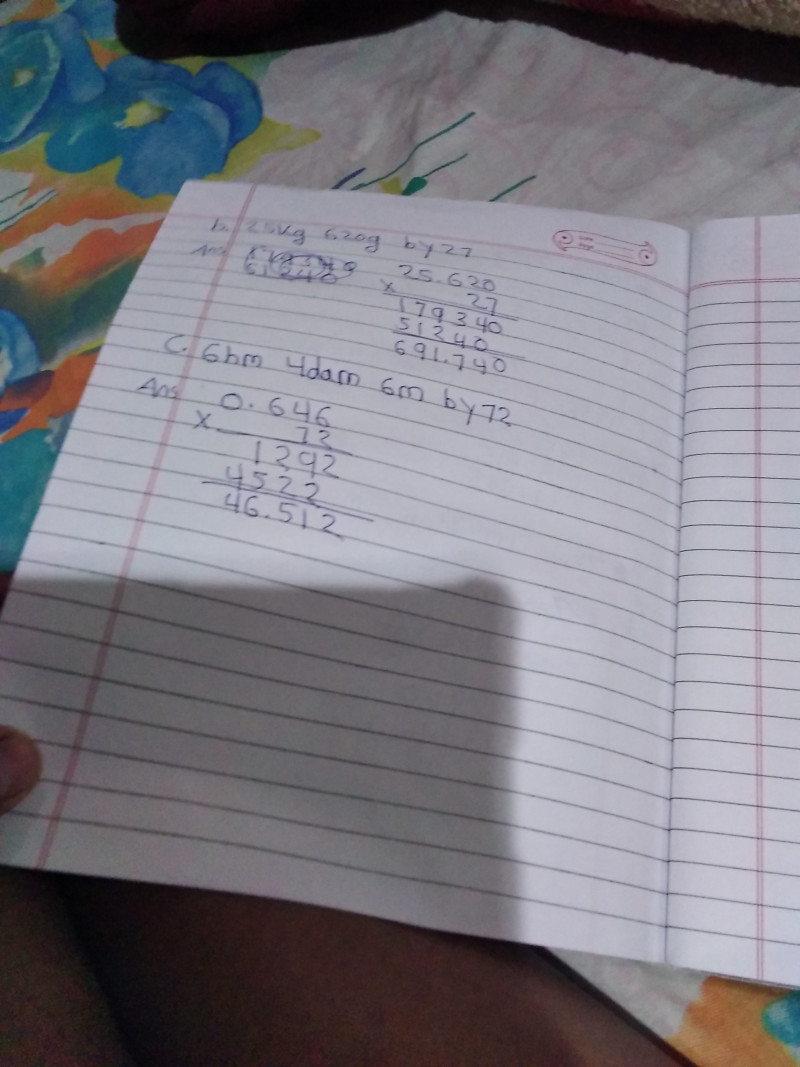 b. 25kg 620g by 27
Ans
25.620
x 27
179340
51240
691.740
C. 6hm 4dam 6m by 72
Ans
0.646
x 72
1292
4522
46.512